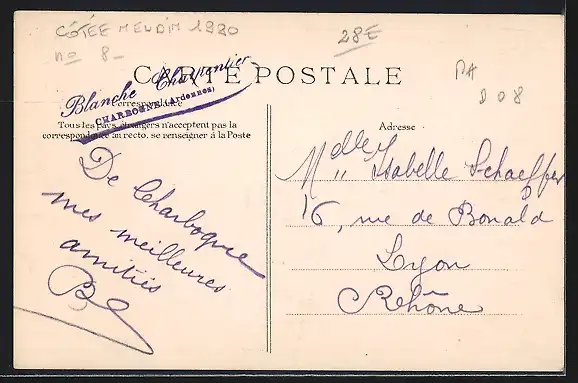 COTÉE NEUDIN 1990
no 8-
28E
DA
D 08
CARTE POSTALE
Blanche Charpentier
CHARBOGNE (Ardennes)
Correspondance
Tous les pays étrangers n'acceptent pas la
correspondance au recto, se renseigner à la Poste
De Charbogne
mes meilleures
amitiés
BC
Adresse
Mdelle Isabelle Schaeffer
16, rue de Bonald
Lyon
Rhône